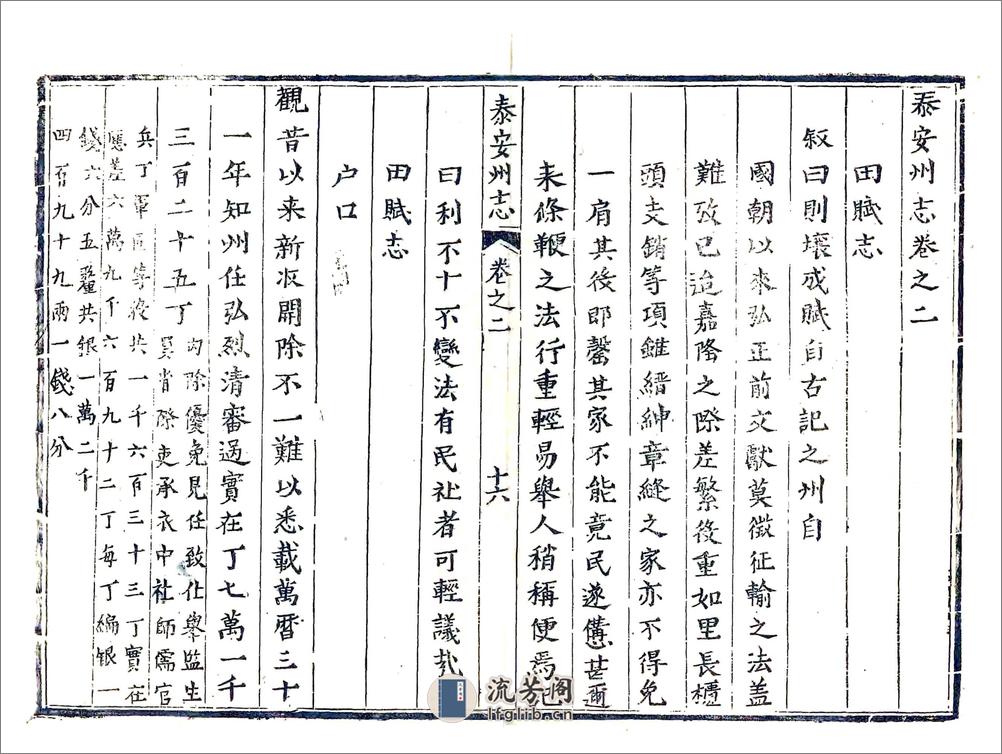 泰安州志卷之二
田賦志
叙曰則壤成賦自古記之州自
國朝以來弘正前文獻莫徵征輸之法盖
難攷已迨嘉隆之際差繁役重如里長櫃
頭支銷等項雖縉紳章縫之家亦不得免
一肩其後即罄其家不能竟民遂憊甚邇
来條鞭之法行重輕易舉人稍稱便焉
泰安州志 卷之二 十六
曰利不十不變法有民社者可輕議哉
田賦志
户口
觀昔以来新收開除不一難以悉載萬曆三十
一年知州任弘烈清審過實在丁七萬一千
三百二十五丁
内除優免見任致仕舉監生
員省祭吏承衣巾社師儒官
兵丁軍匠等役共一千六百三十三丁實在
應差六萬九千六百九十二丁每丁編银一
錢六分五釐共银一萬二千
四百九十九兩一錢八分
流芳阁
lfglib.cn